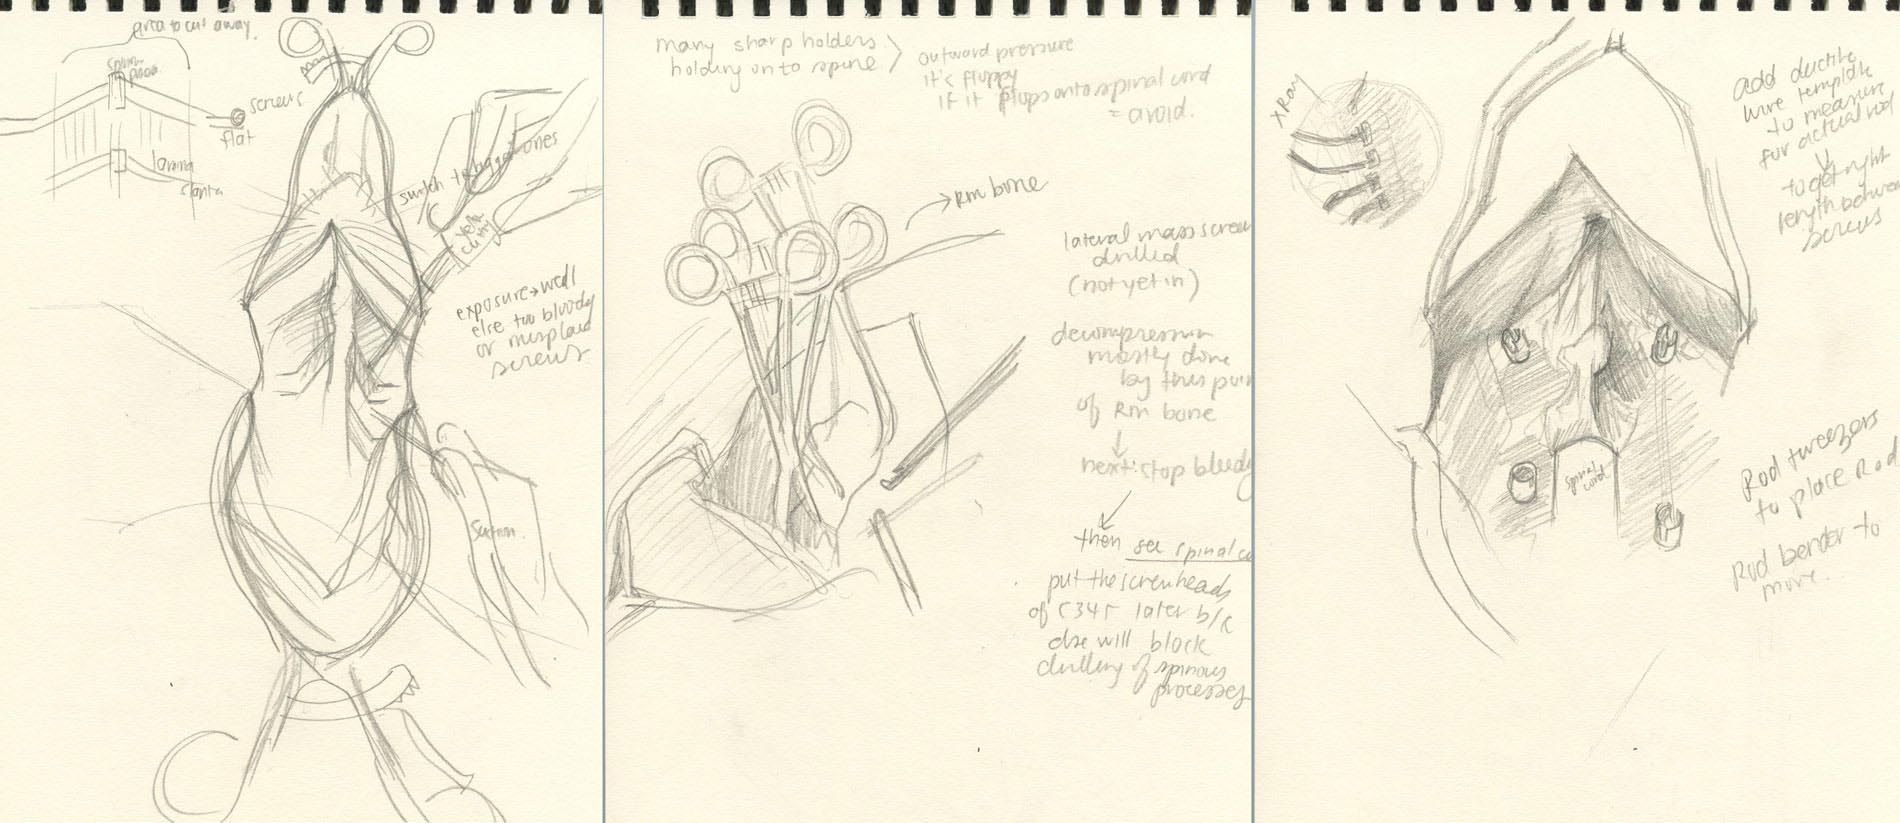 area to cut away.
screws
flat
lamina
switch to bigger ones
exposure → well
else too bloody
or misplaced
screws
Suction
many sharp holders
holding on to spine
outward pressure
it's floppy
if it plops onto spinal cord
= avoid.
→ Rm bone
lateral mass screw
drilled
(not yet in)
decompression
mostly done
by this poin
of Rm bone
next: stop bleedg
then see spinal co
put the screwheads
of C345 later b/c
else will block
drilling of spinous
processes
X Ray
add ductile
wire template
to measure
for actual rod
to get right
length between
screws
spinal
cord
Rod tweezers
to place Rod
Rod bender to
more.